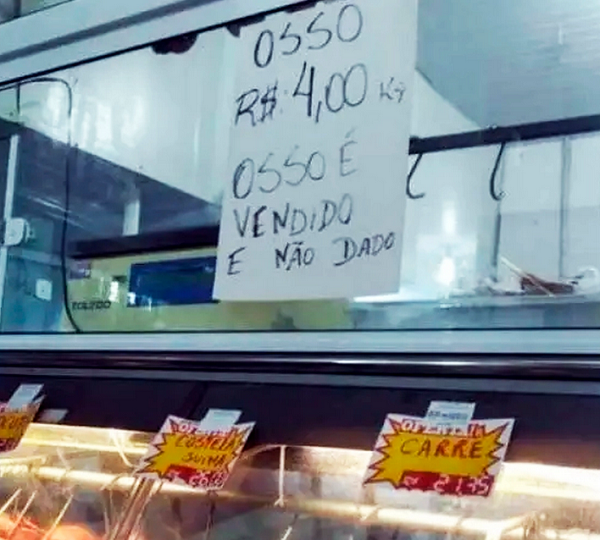 OSSO
R$: 4,00 Kg
OSSO É
VENDIDO
E NÃO DADO
TOLEDO
COSTELA
SUINA
CARRE
21,95